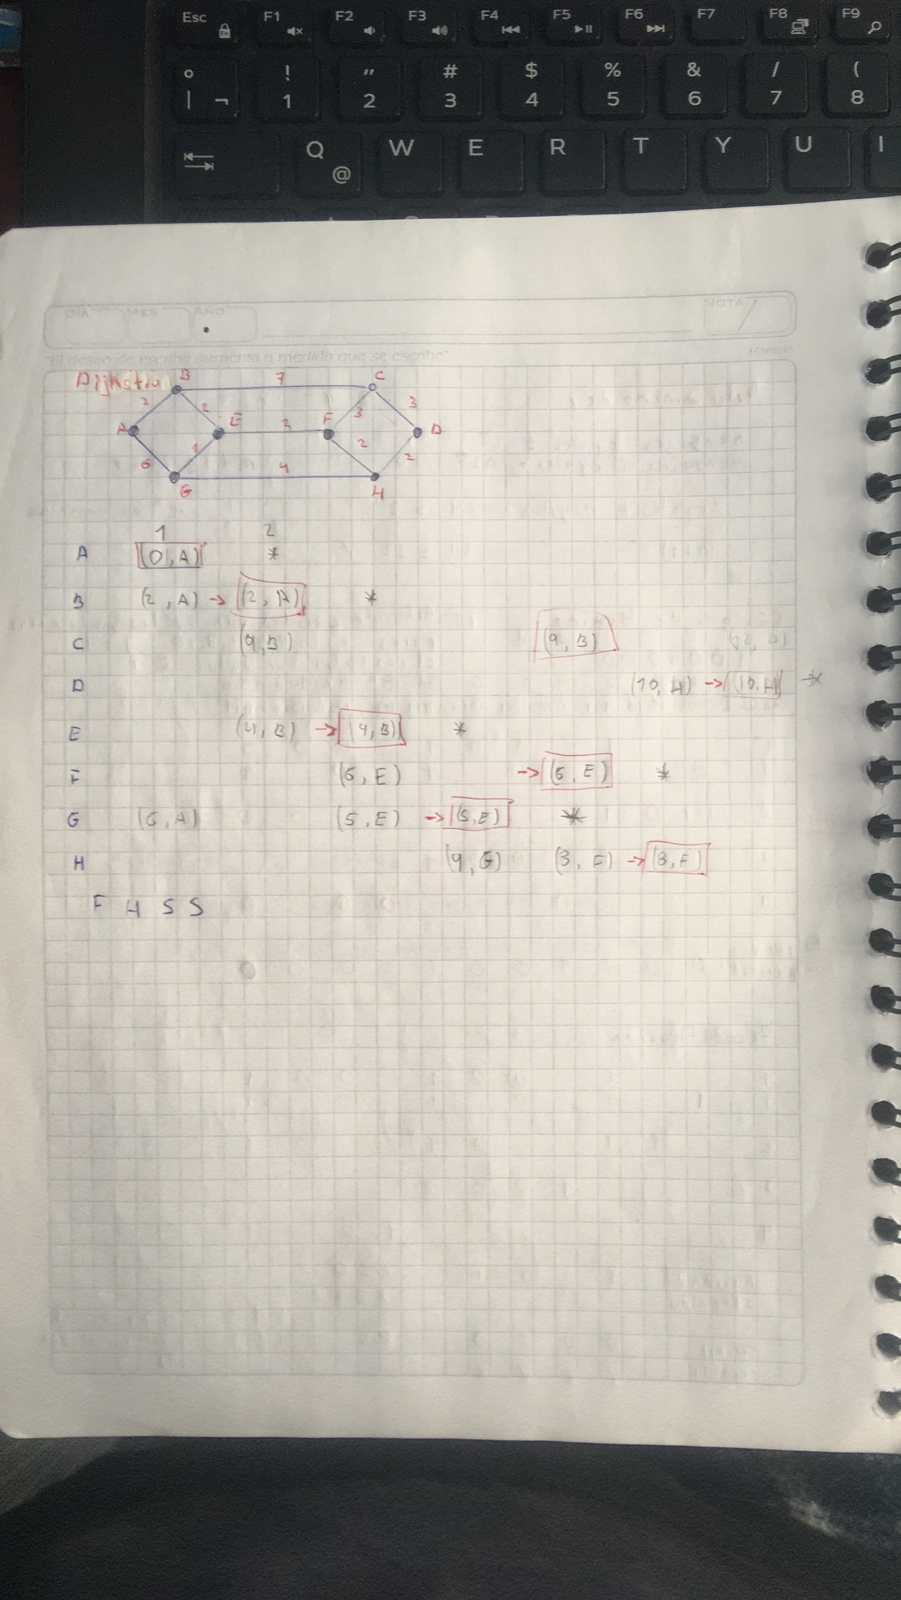 Esc F1 F2 F3 F4 F5 F6 F7 F8 F9
° ! " # $ % & / (
| ¬ 1 2 3 4 5 6 7 8
Q W E R T Y U I
@
DIA MES AÑO NOTA
"El deseo de escribir aumenta a medida que se escribe"
Dijkstra B 7 C
2 2 3 3
A E F D
6 1 2 2
G 4 H
1 2
A (0,A) *
B (2,A) → (2,A) *
C (9,B) (9,B)
D (10,H) → (10,H) *
E (4,B) → (4,B) *
F (6,E) → (6,E) *
G (6,A) (5,E) → (5,E) *
H (9,G) (8,F) → (8,F)
F H S S